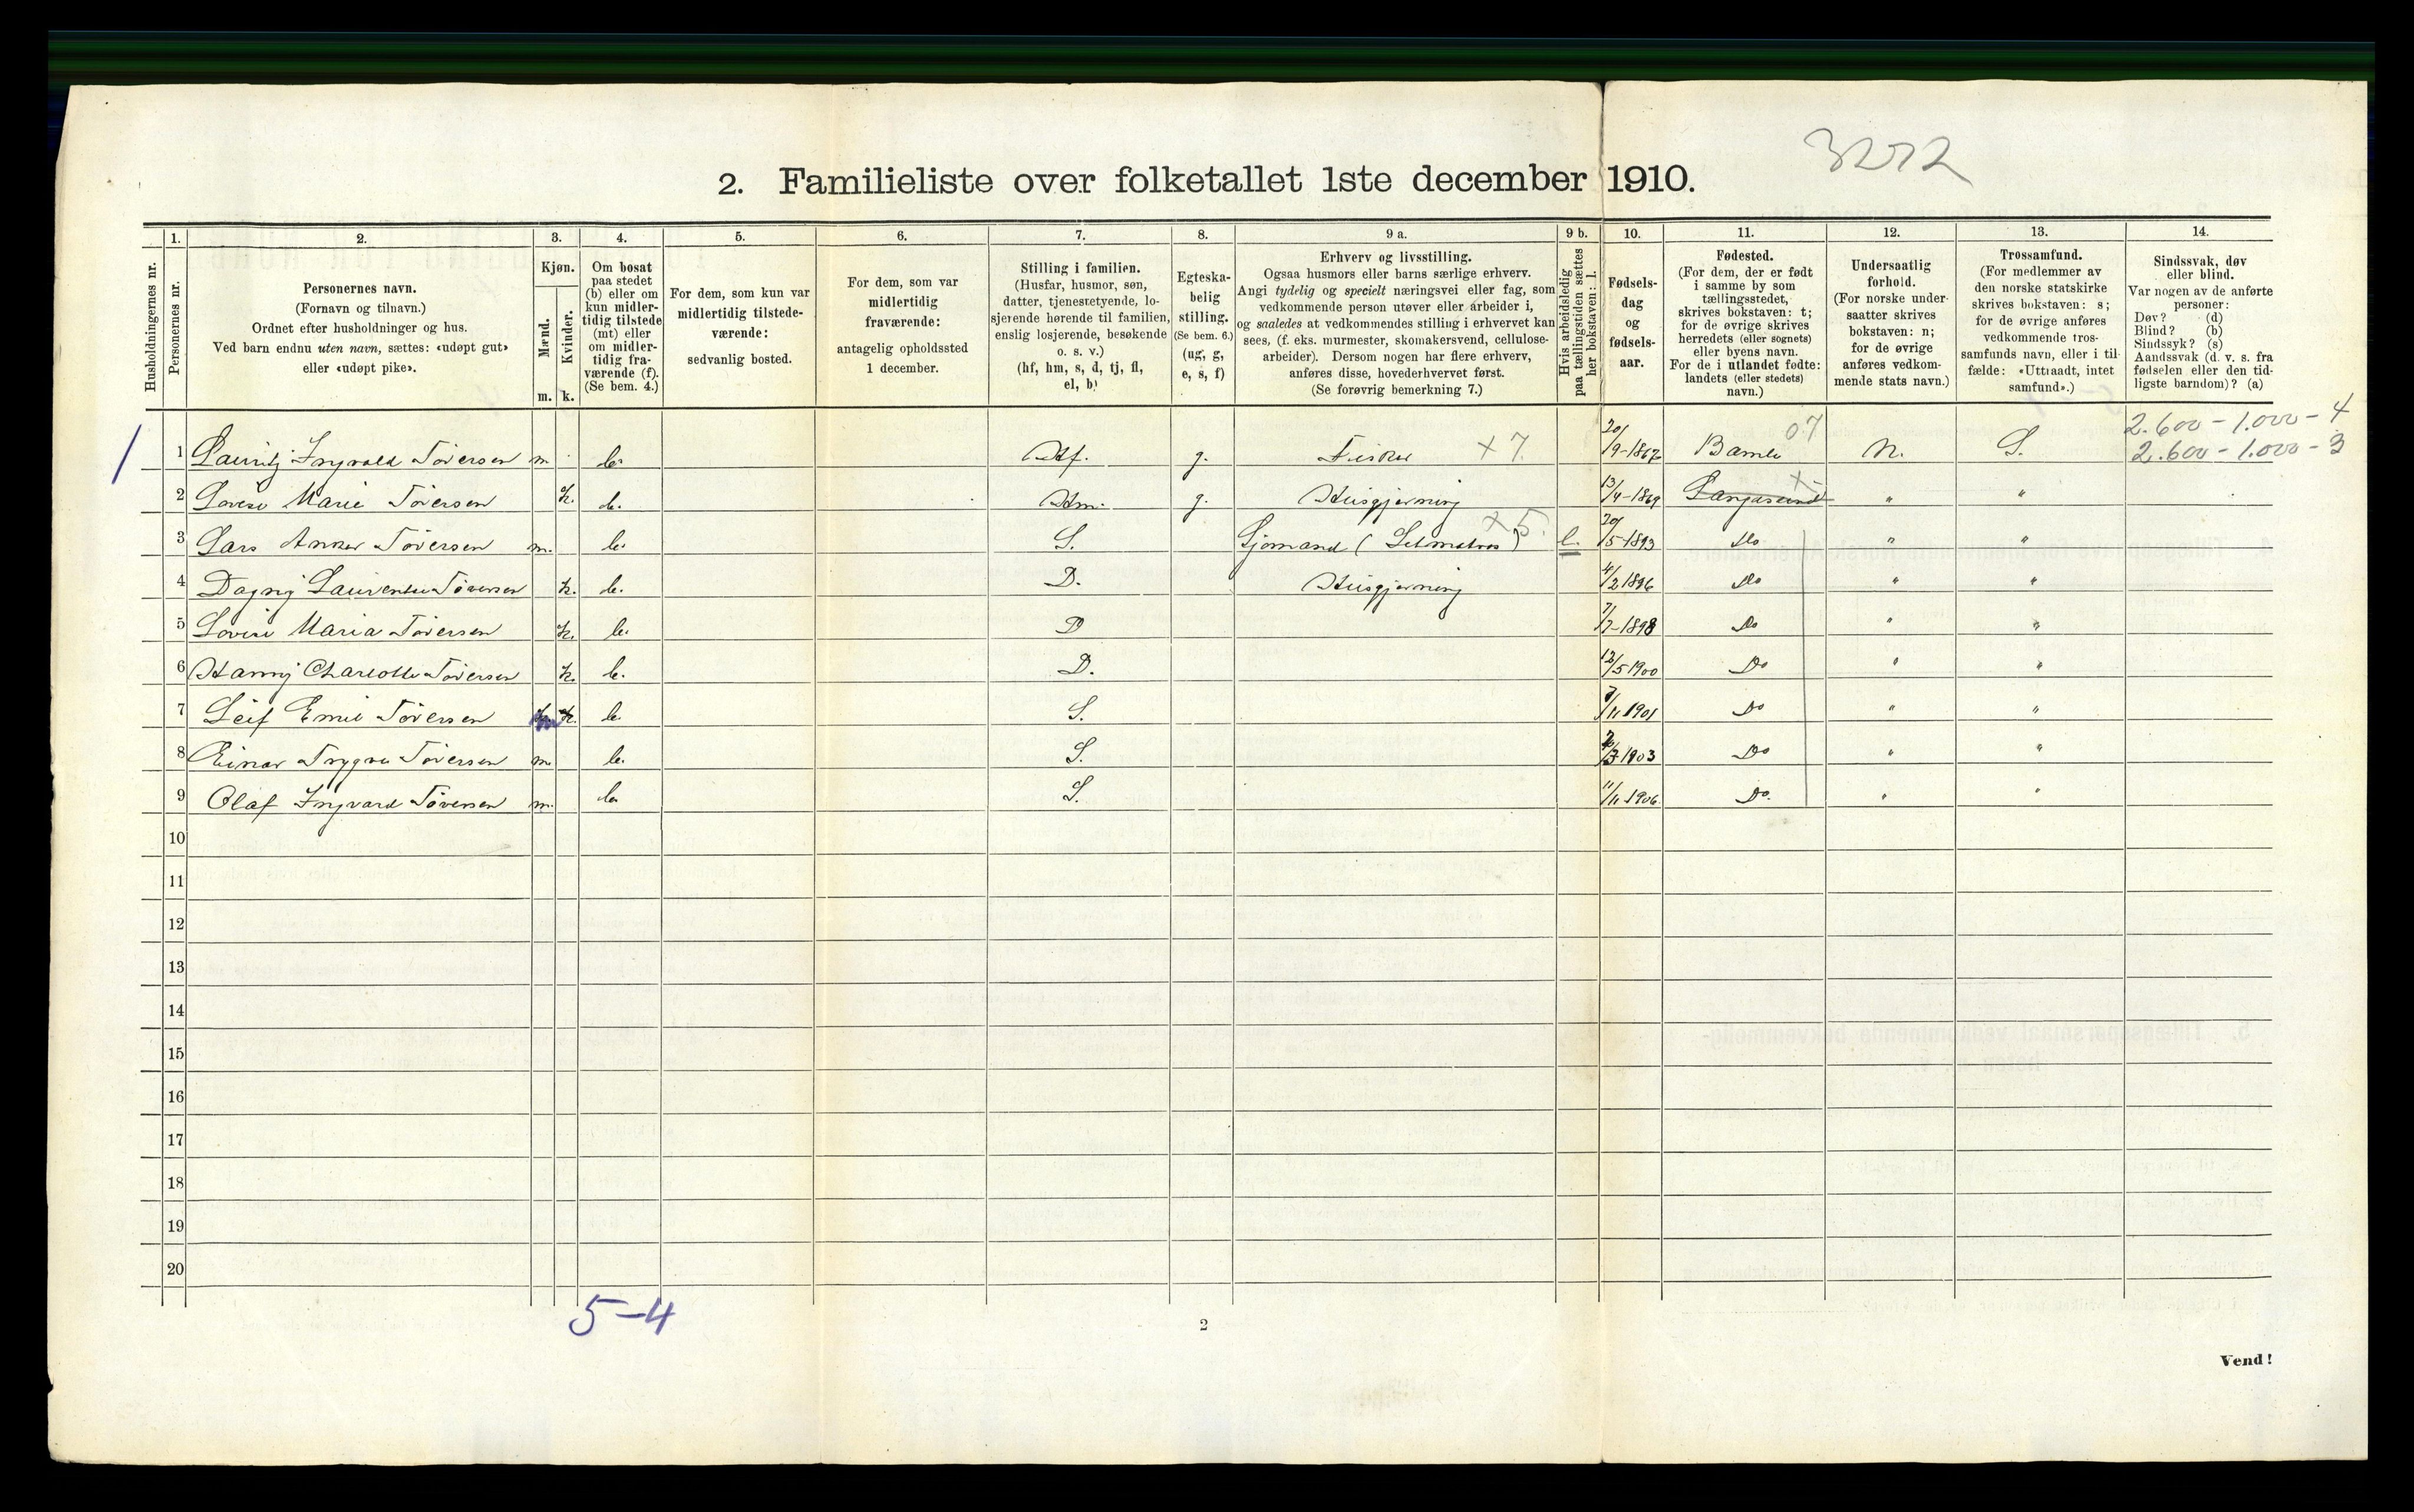 3272
2. Familieliste over folketallet 1ste december 1910.
Husholdningernes nr.
1. Personernes nr.
2. Personernes navn. (Fornavn og tilnavn.) Ordnet efter husholdninger og hus. Ved barn endnu uten navn, sættes: «udøpt gut» eller «udøpt pike».
3. Kjøn. Mænd. m. Kvinder. k.
4. Om bosat paa stedet (b) eller om kun midlertidig tilstede (mt) eller om midlertidig fraværende (f). (Se bem. 4.)
5. For dem, som kun var midlertidig tilstedeværende: sedvanlig bosted.
6. For dem, som var midlertidig fraværende: antagelig opholdssted 1 december.
7. Stilling i familien. (Husfar, husmor, søn, datter, tjenestetyende, losjerende hørende til familien, enslig losjerende, besøkende o. s. v.) (hf, hm, s, d, tj, fl, el, b)
8. Egteskabelig stilling. (Se bem. 6.) (ug, g, e, s, f)
9 a. Erhverv og livsstilling. Ogsaa husmors eller barns særlige erhverv. Angi tydelig og specielt næringsvei eller fag, som vedkommende person utøver eller arbeider i, og saaledes at vedkommendes stilling i erhvervet kan sees, (f. eks. murmester, skomakersvend, cellulosearbeider). Dersom nogen har flere erhverv, anføres disse, hovederhvervet først. (Se forøvrig bemerkning 7.)
9 b. Hvis arbeidsledig paa tællingstiden sættes her bokstaven: l.
10. Fødselsdag og fødselsaar.
11. Fødested. (For dem, der er født i samme by som tællingsstedet, skrives bokstaven: t; for de øvrige skrives herredets (eller sognets) eller byens navn. For de i utlandet fødte: landets (eller stedets) navn.)
12. Undersaatlig forhold. (For norske undersaatter skrives bokstaven: n; for de øvrige anføres vedkommende stats navn.)
13. Trossamfund. (For medlemmer av den norske statskirke skrives bokstaven: s; for de øvrige anføres vedkommende trossamfunds navn, eller i tilfælde: «Uttraadt, intet samfund».)
14. Sindssvak, døv eller blind. Var nogen av de anførte personer: Døv? (d) Blind? (b) Sindssyk? (s) Aandssvak (d. v. s. fra fødselen eller den tidligste barndom)? (a)
2.600 - 1.000 - 4
1 Lauritz Ingvald Töversen m. b. Hf. g. Fisker x 7. 20/9-1867 Bamle 07 N. S. 2.600 - 1.000 - 3
2 Lovise Marie Töversen k. b. Hm. g. Husgjerning 13/4-1869 Langesund x " "
3 Lars Anker Töversen m. b. S. Sjömand (Letmatros) x 5. l. 20/5-1893 Do " "
4 Dagny Laurentse Töversen k. b. D. Husgjerning 4/2 1896 Do " "
5 Lovise Maria Töversen k. b. D 7/7-1898 Do " "
6 Hanny Charlotte Töversen k. b. D. 12/5 1900 Do " "
7 Leif Emil Töversen m k. b. S. 7/11 1901 Do " "
8 Einar Trygve Töversen m. b. S. /3 1903 Do " "
9 Olaf Ingvard Töversen m. b. S. 11/11 1906 Do. " "
10
11
12
13
14
15
16
17
18
19
20
5-4
2
Vend!